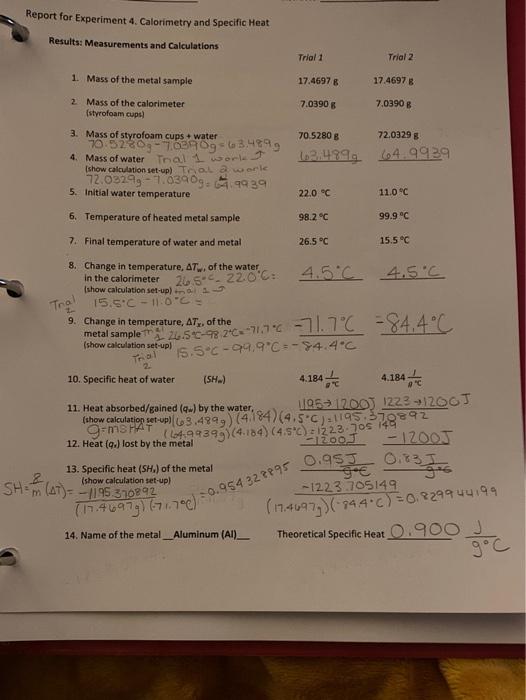 Report for Experiment 4. Calorimetry and Specific Heat
Results: Measurements and Calculations
Trial 1 Trial 2
1. Mass of the metal sample 17.4697 g 17.4697 g
2. Mass of the calorimeter 7.0390 g 7.0390 g
(styrofoam cups)
3. Mass of styrofoam cups + water 70.5280 g 72.0329 g
70.5280g - 7.0390g = 63.489g
4. Mass of water Trial 1 work 63.489g 64.9939
(show calculation set-up) Trial 2 work
72.0329g - 7.0390g = 64.9939
5. Initial water temperature 22.0 °C 11.0 °C
6. Temperature of heated metal sample 98.2 °C 99.9 °C
7. Final temperature of water and metal 26.5 °C 15.5 °C
8. Change in temperature, ΔTw, of the water
in the calorimeter 26.5°C - 22.0°C = 4.5°C 4.5°C
(show calculation set-up) trial 1
Trial 2 15.5°C - 11.0°C =
9. Change in temperature, ΔTx, of the
metal sample 26.5°C - 98.2°C = -71.7°C -71.7°C -84.4°C
(show calculation set-up)
Trial 2 15.5°C - 99.9°C = -84.4°C
10. Specific heat of water (SHw) 4.184 J/g°C 4.184 J/g°C
11. Heat absorbed/gained (qw) by the water 1195→1200J 1223→1200J
(show calculation set-up) (63.489g)(4.184)(4.5°C) = 1195.370892
q=mSHΔT (64.9939g)(4.184)(4.5°C) = 1223.705149
12. Heat (qx) lost by the metal -1200J -1200J
13. Specific heat (SHx) of the metal 0.95 J/g°C 0.83 J/g°C
(show calculation set-up)
SH = q/m(ΔT) = -1195.370892 / (17.4697g)(-71.7°C) = 0.954328895
-1223.705149 / (17.4697g)(-84.4°C) = 0.829944199
14. Name of the metal __Aluminum (Al)__ Theoretical Specific Heat 0.900 J/g°C